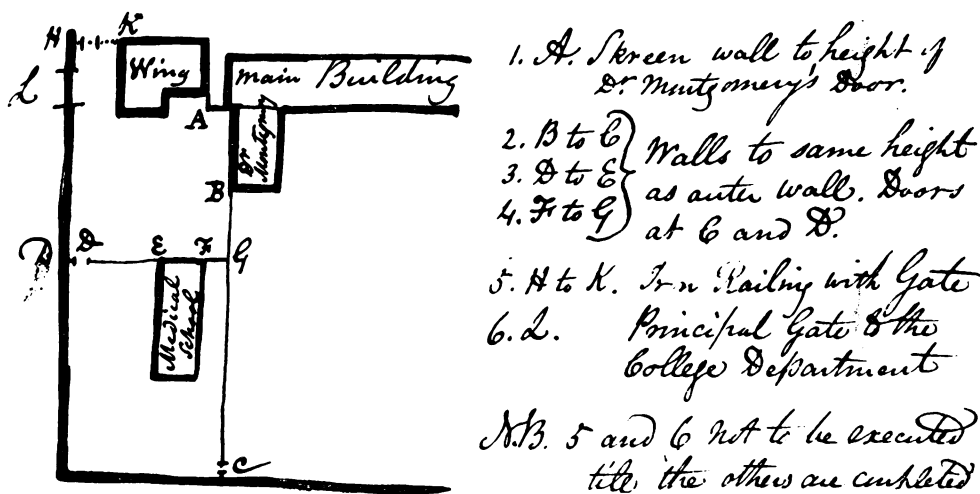 H K
Wing
main Building
L
A
Dr Montgomery
B
D D E F G
Medical School
C
1. A. Skreen wall to height of
Dr Montgomery's Door.
2. B to C
3. D to E
4. F to G
Walls to same height
as outer wall. Doors
at C and D.
5. H to K. Iron Railing with Gate
6. L. Principal Gate to the
College Department
N.B. 5 and 6 not to be executed
till the others are completed